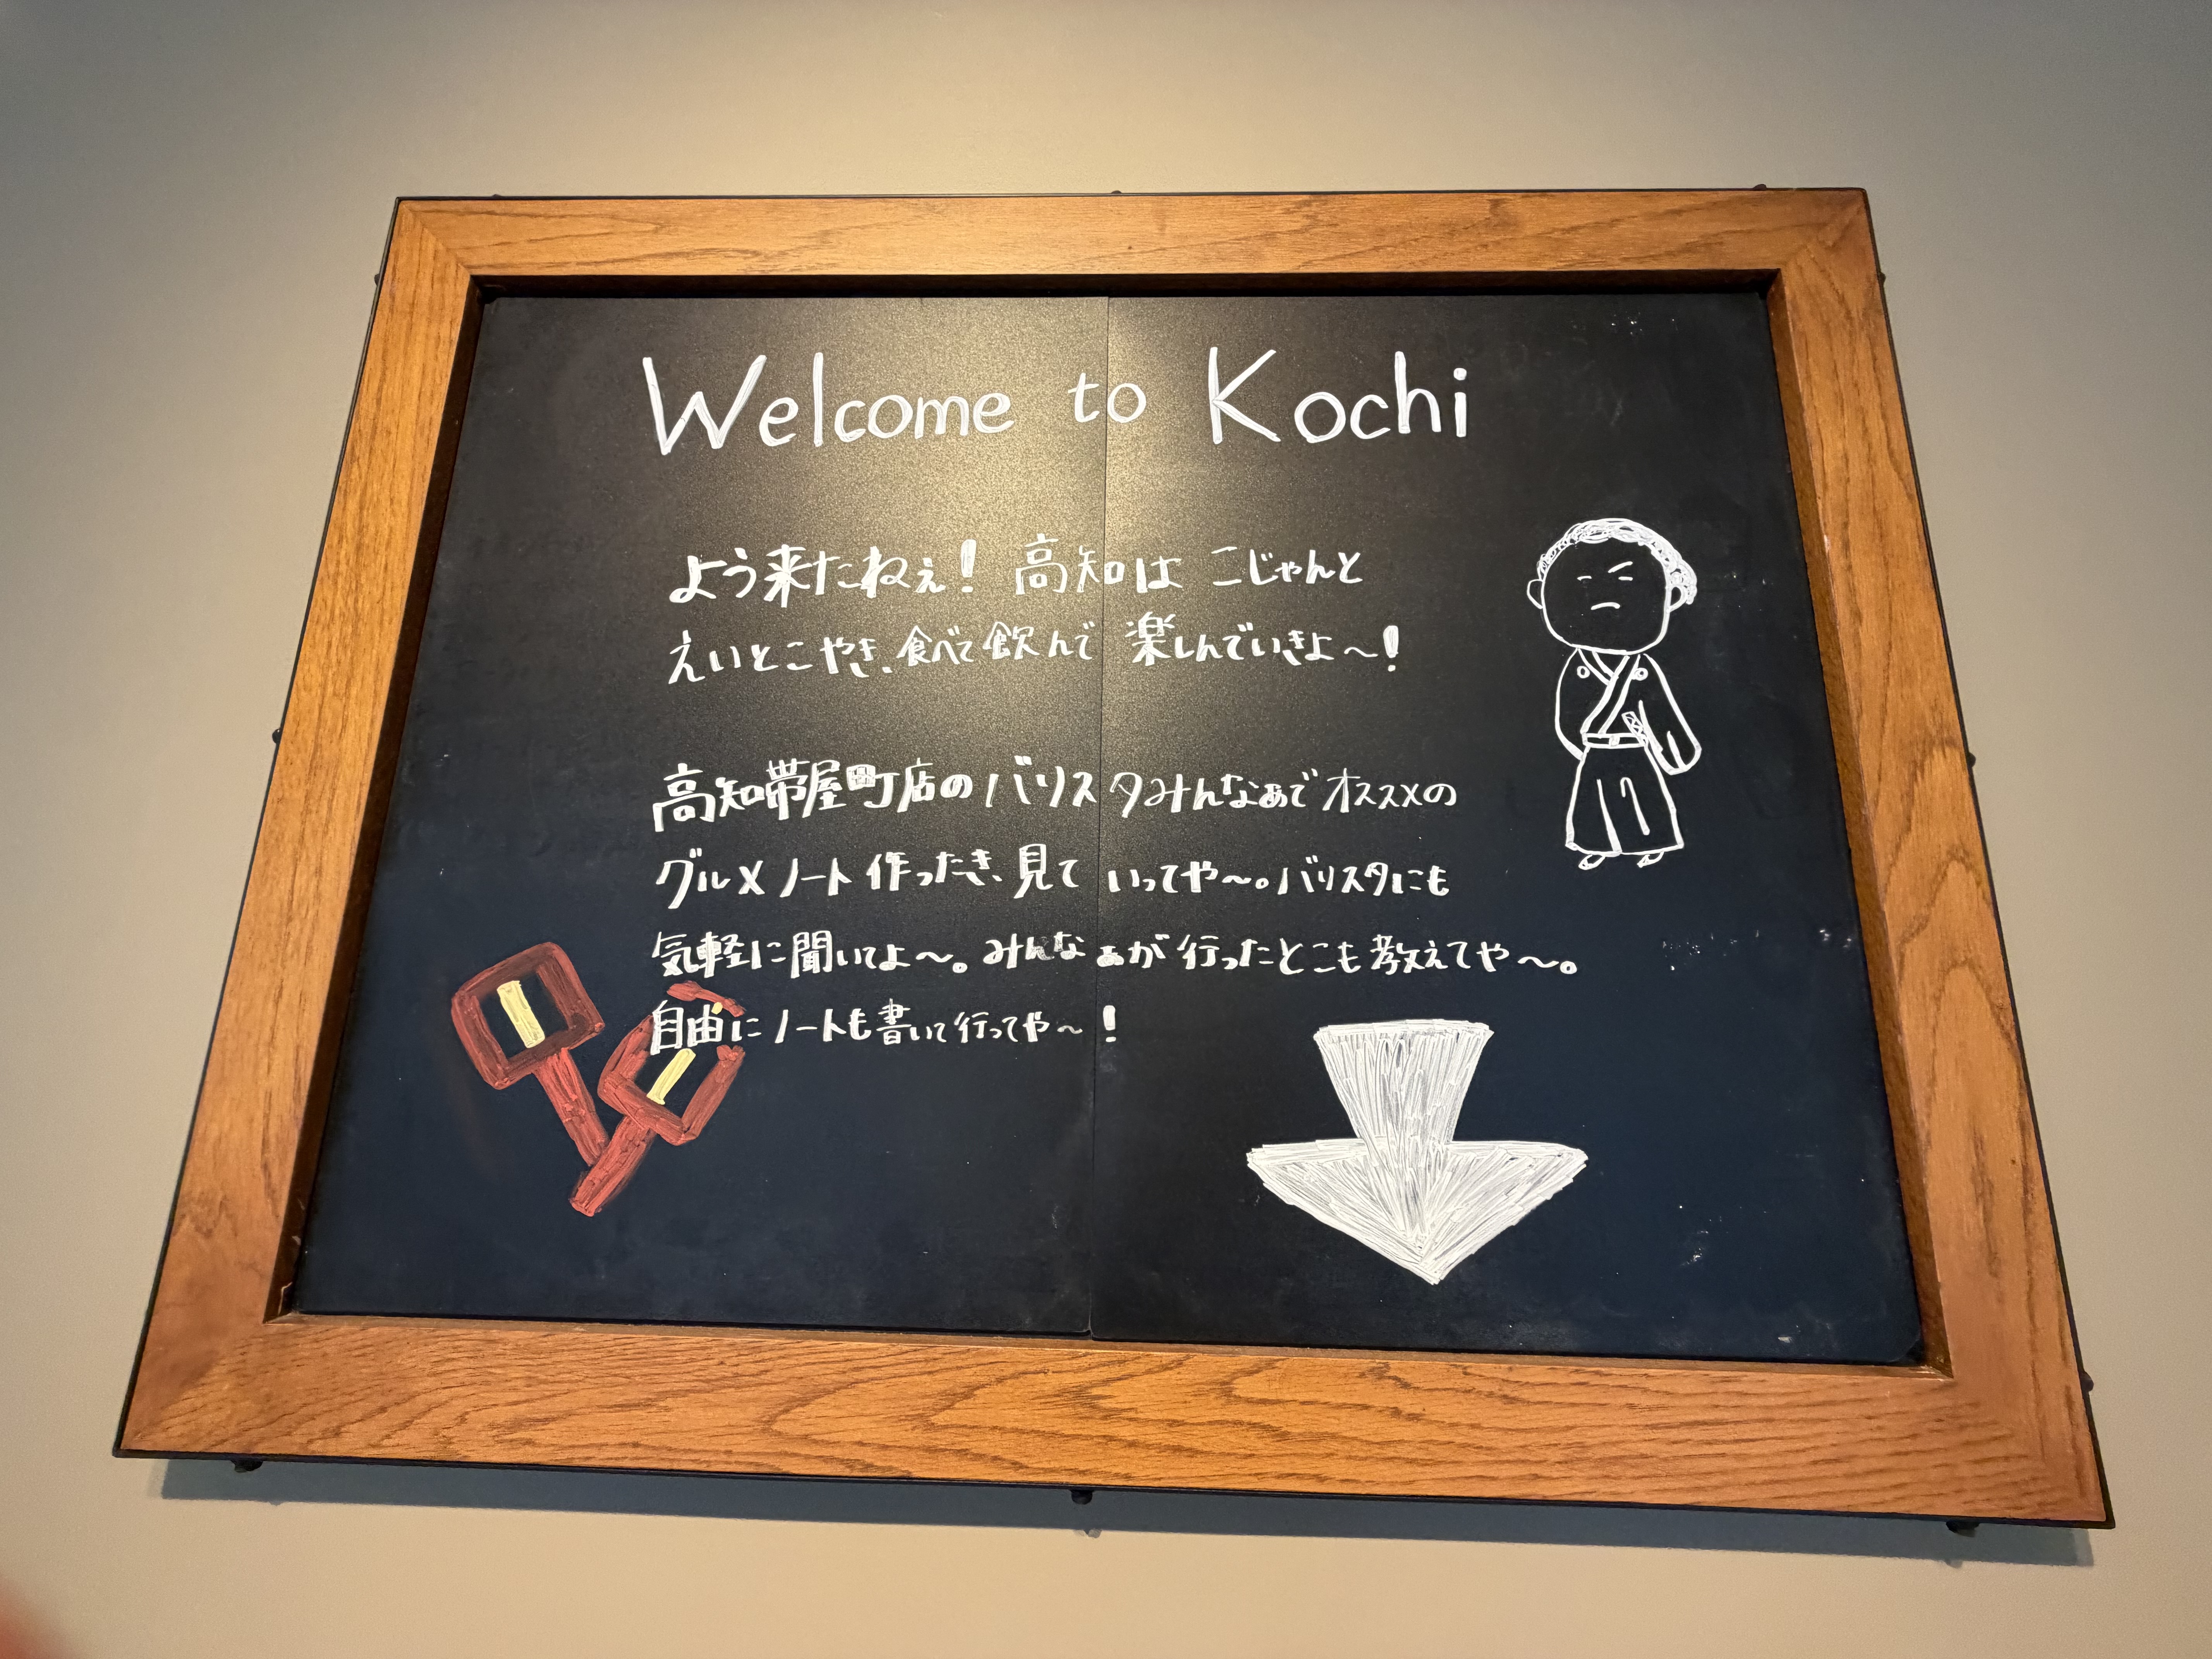 Welcome to Kochi
よう来たねぇ! 高知は こじゃんと
えいとこやき、食べて飲んで 楽しんでいきよ〜!
高知帯屋町店のバリスタみんなあでオススメの
グルメノート作ったき、見て いってや〜。バリスタにも
気軽に聞いてよ〜。みんなぁが行ったとこも教えてや〜。
自由にノートも書いて行ってや〜!